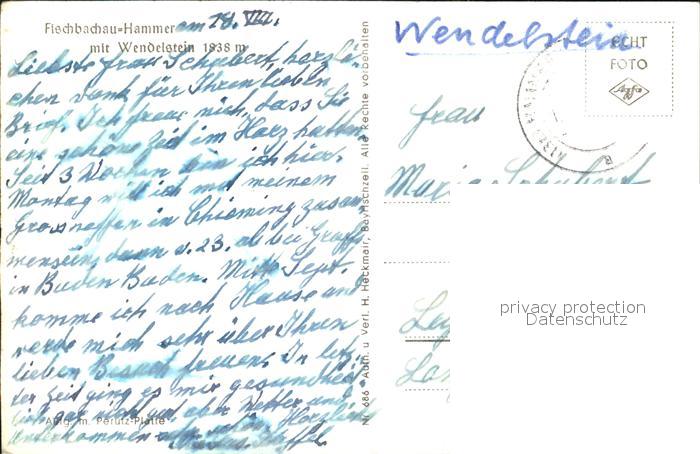 Fischbachau-Hammer am 18. VIII.
mit Wendelstein 1838 m
Liebste Frau Schubert, herzli-
chen Dank für Ihren lieben
Brief. Ich freue mich, dass Sie
eine schöne Zeit im Harz hatten.
Seit 3 Wochen bin ich hier.
Montag will ich mit meinem
Grossneffen in Chieming zusam-
mensein, dann v. 23. ab bei
in Baden Baden. Mitte Sept.
komme ich nach Hause und
werde mich sehr über Ihren
lieben Besuch freuen. In letz-
ter Zeit ging es mir gesundheit-
lich gar nicht gut, aber Wetter und
Aufg. m. Perutz-Platte
Unterkommen Herzlichst
Nr. 686 Aufn. u. Verl. H. Heckmair, Bayrischzell. Alle Rechte vorbehalten
Wendelstein
ECHT
FOTO
Agfa
Frau
Maria Schubert
privacy protection
Datenschutz